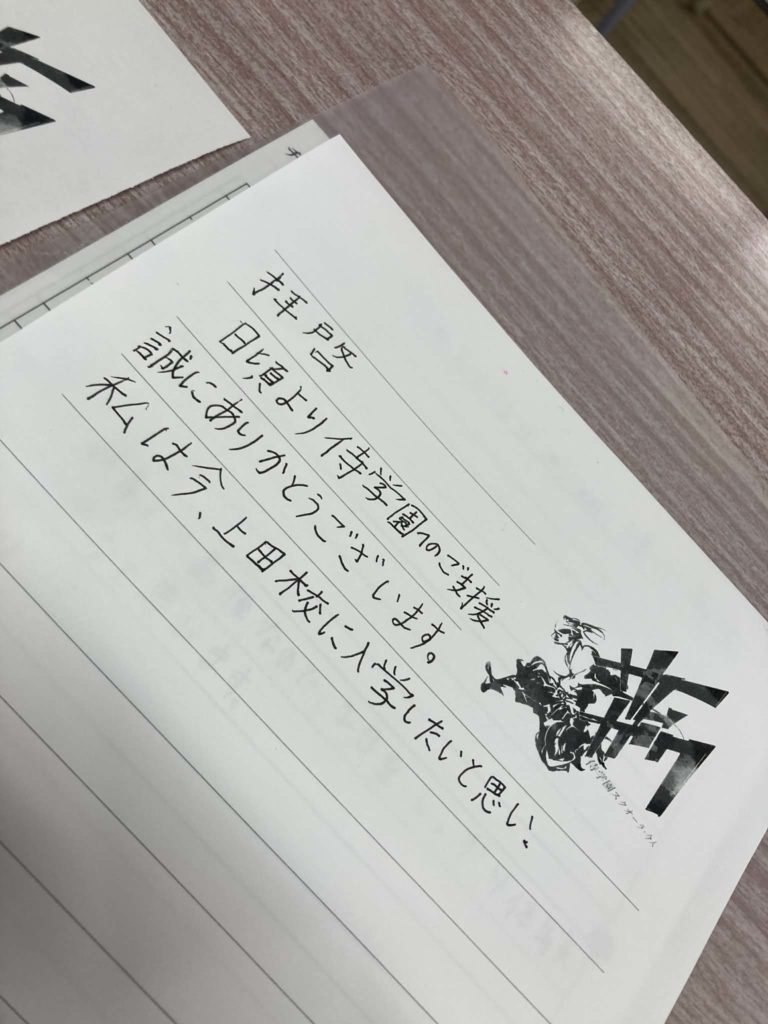 拝啓
日頃より侍学園へのご支援
誠にありがとうございます。
私は今、上田校に入学したいと思い、
サムガク
侍学園スクオーラ・今人